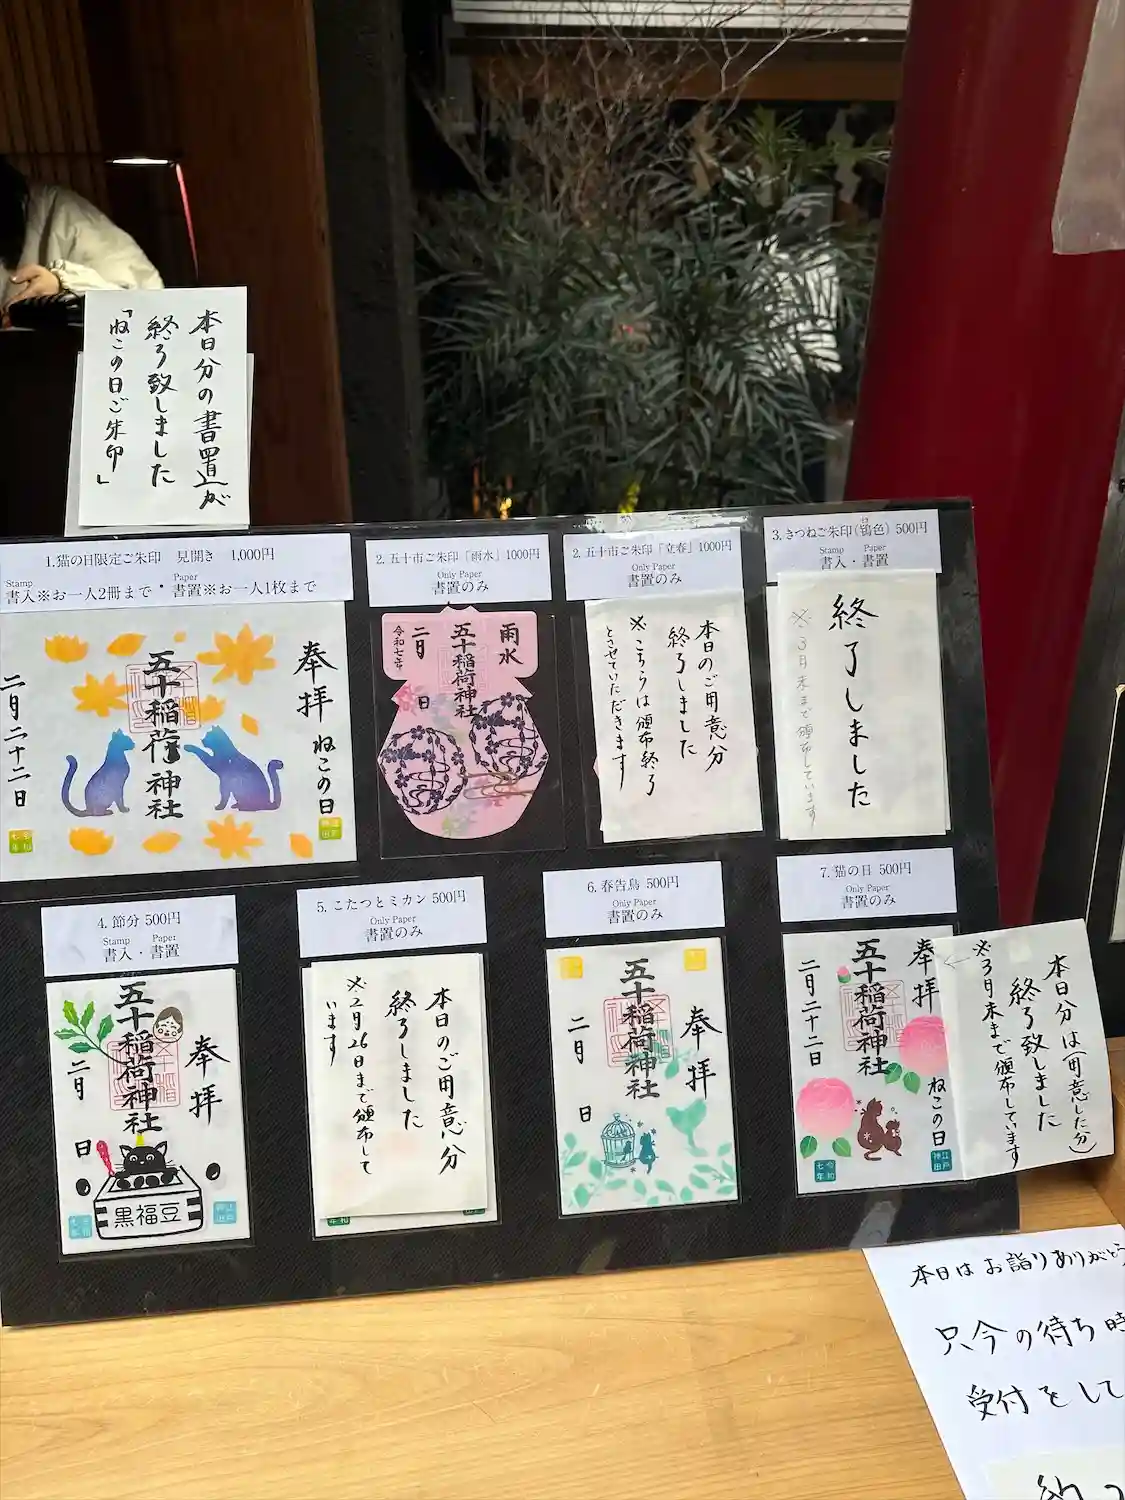 本日分の書置が
終了致しました
「ねこの日ご朱印」
1.猫の日限定ご朱印 見開き 1,000円
Stamp Paper
書入※お一人2冊まで・書置※お一人1枚まで
奉拝
ねこの日
五十稲荷神社
二月二十二日
江戸神田
令和七年
2. 五十市ご朱印「雨水」1000円
Only Paper
書置のみ
雨水
五十稲荷神社
二月 日
令和七年
2. 五十市ご朱印「立春」1000円
Only Paper
書置のみ
本日のご用意分
終了しました
※こちらは頒布終了
とさせていただきます
3. きつねご朱印(鴇色) 500円
Stamp Paper
書入・書置
終了しました
※3月末まで頒布しています
4. 節分 500円
Stamp Paper
書入・書置
奉拝
五十稲荷神社
二月 日
黒福豆
5. こたつとミカン 500円
Only Paper
書置のみ
本日のご用意分
終了しました
※2月26日まで頒布して
います
6. 春告鳥 500円
Only Paper
書置のみ
奉拝
五十稲荷神社
二月 日
7. 猫の日 500円
Only Paper
書置のみ
奉拝
ねこの日
五十稲荷神社
二月二十二日
江戸神田
令和七年
本日分は(用意した分)
終了致しました
※3月末まで頒布しています
本日はお詣りありがとう
只今の待ち時
受付をして